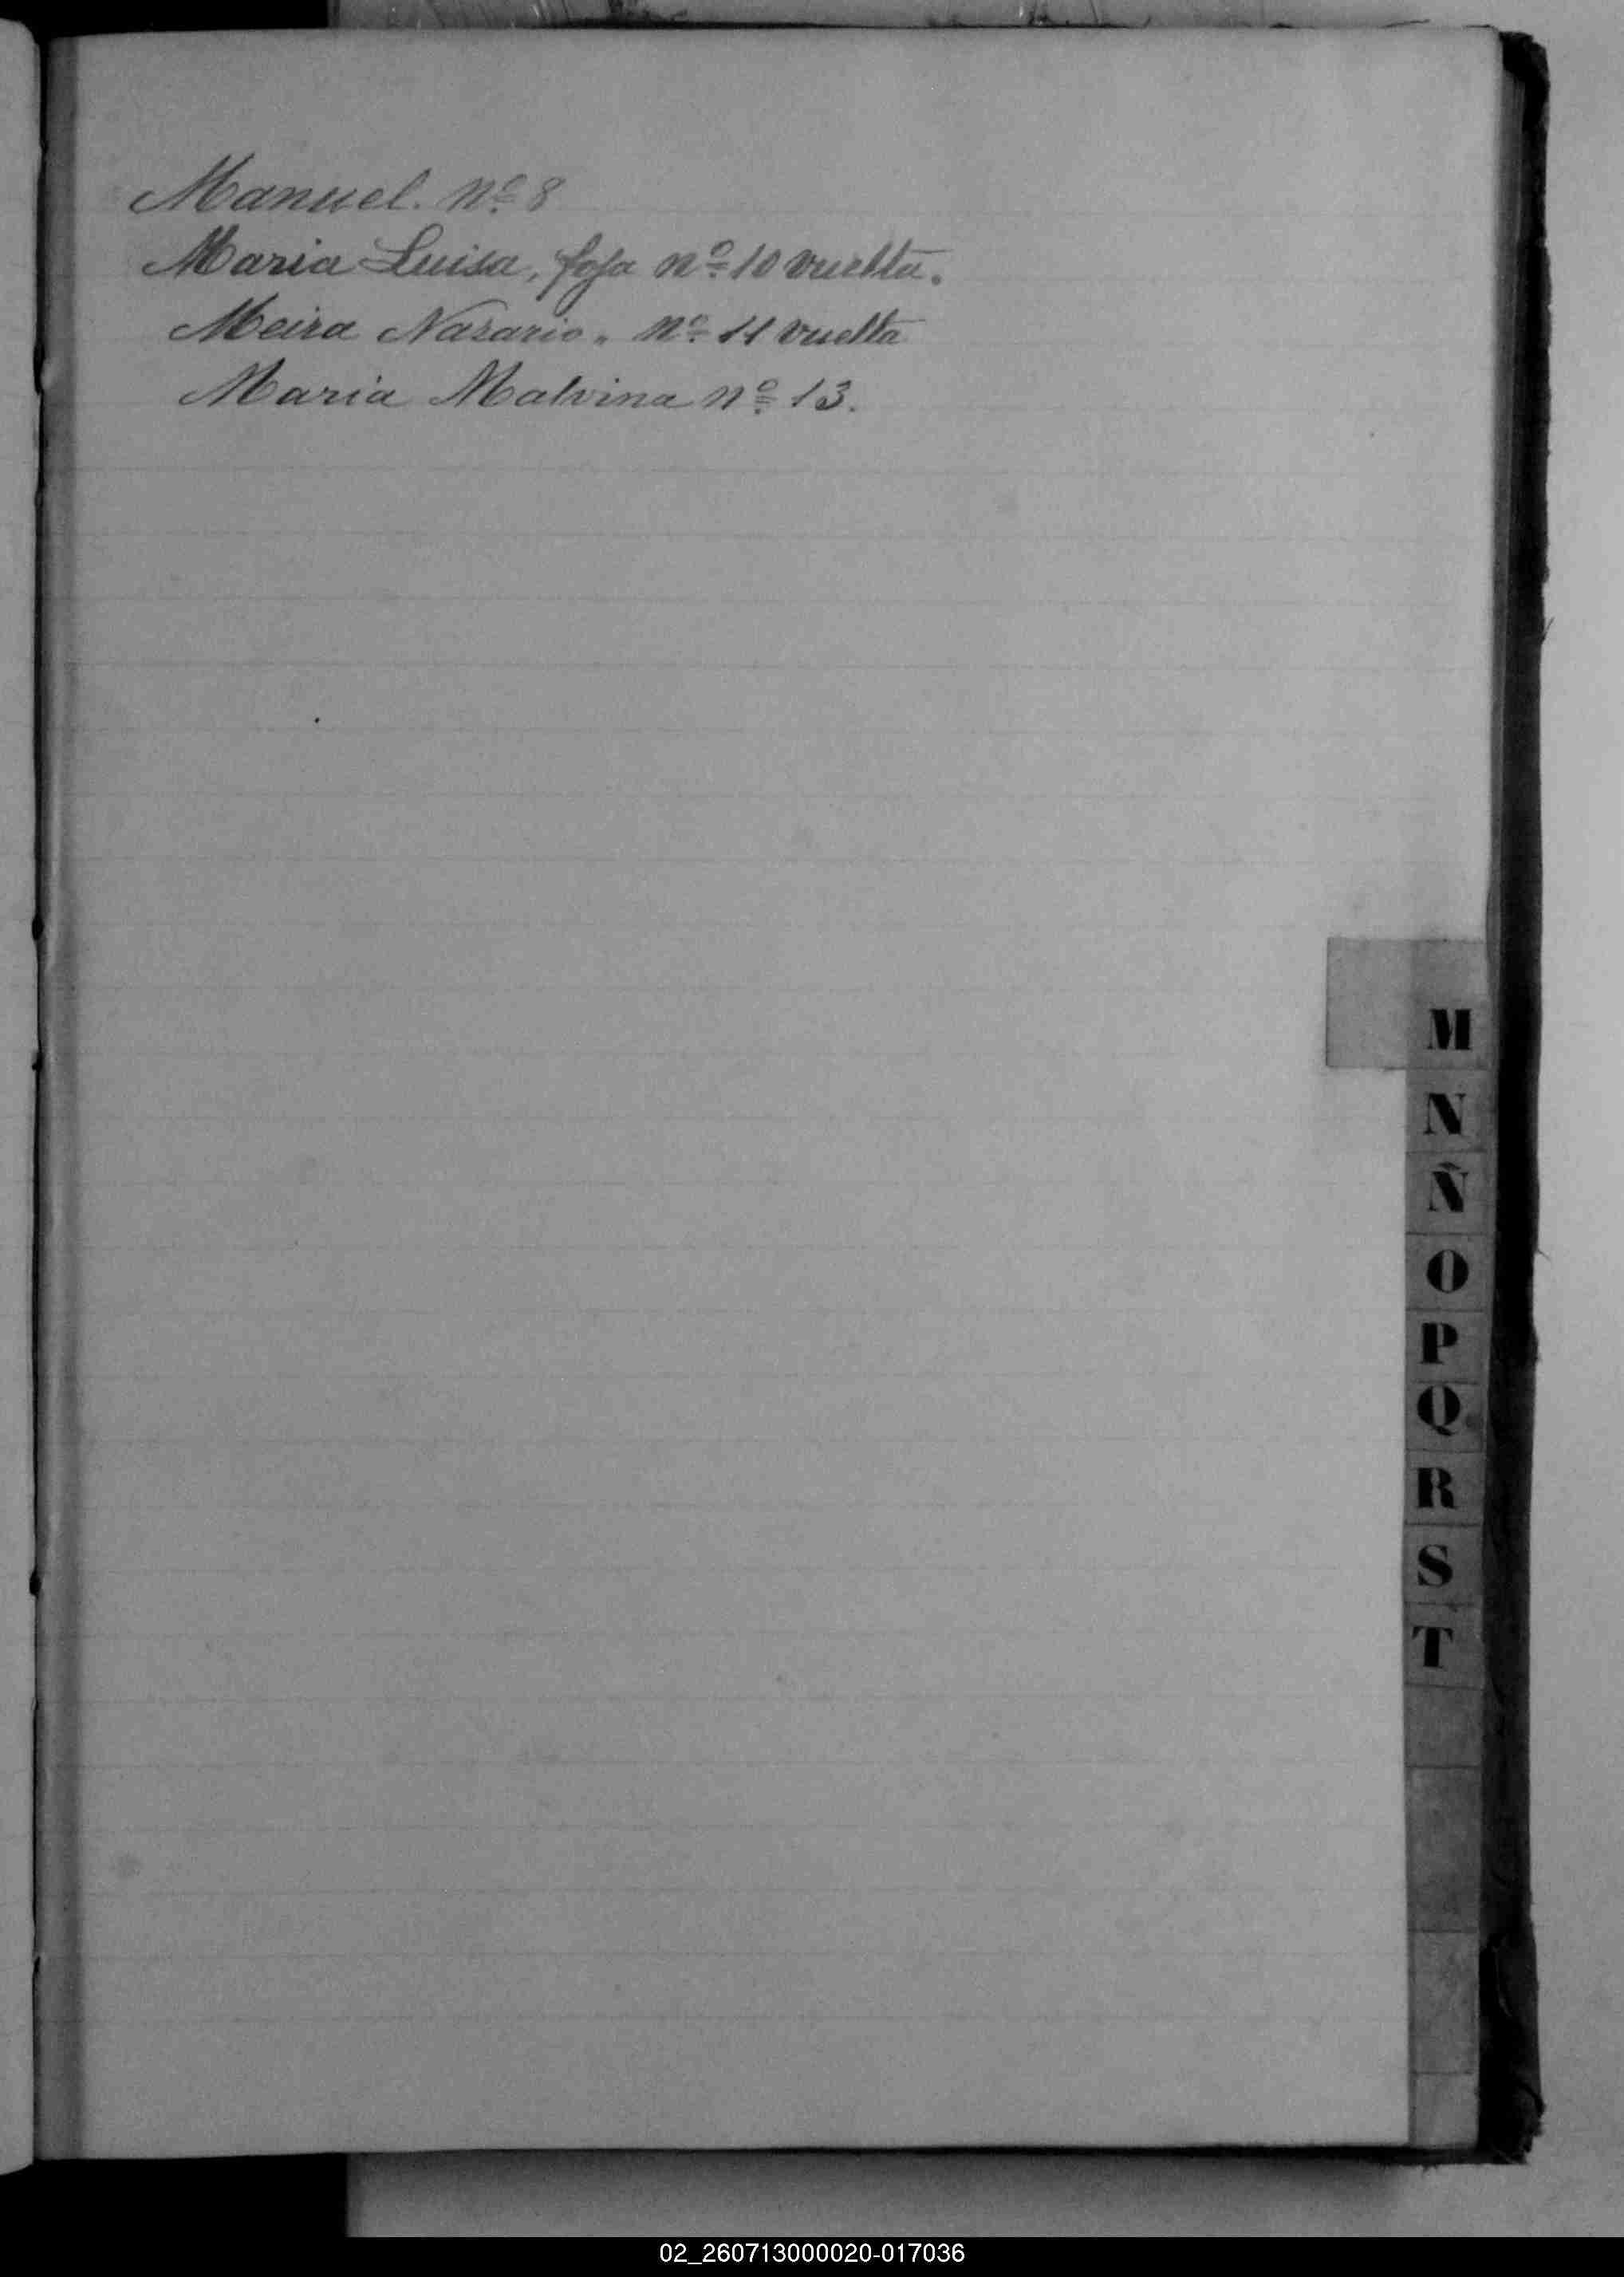 Manuel. Nº 8
Maria Luisa, foja nº 10 vuelta.
Meira Nazario " Nº 11 vuelta
Maria Malvina nº 13.
M
N
Ñ
O
P
Q
R
S
T
02_260713000020-017036